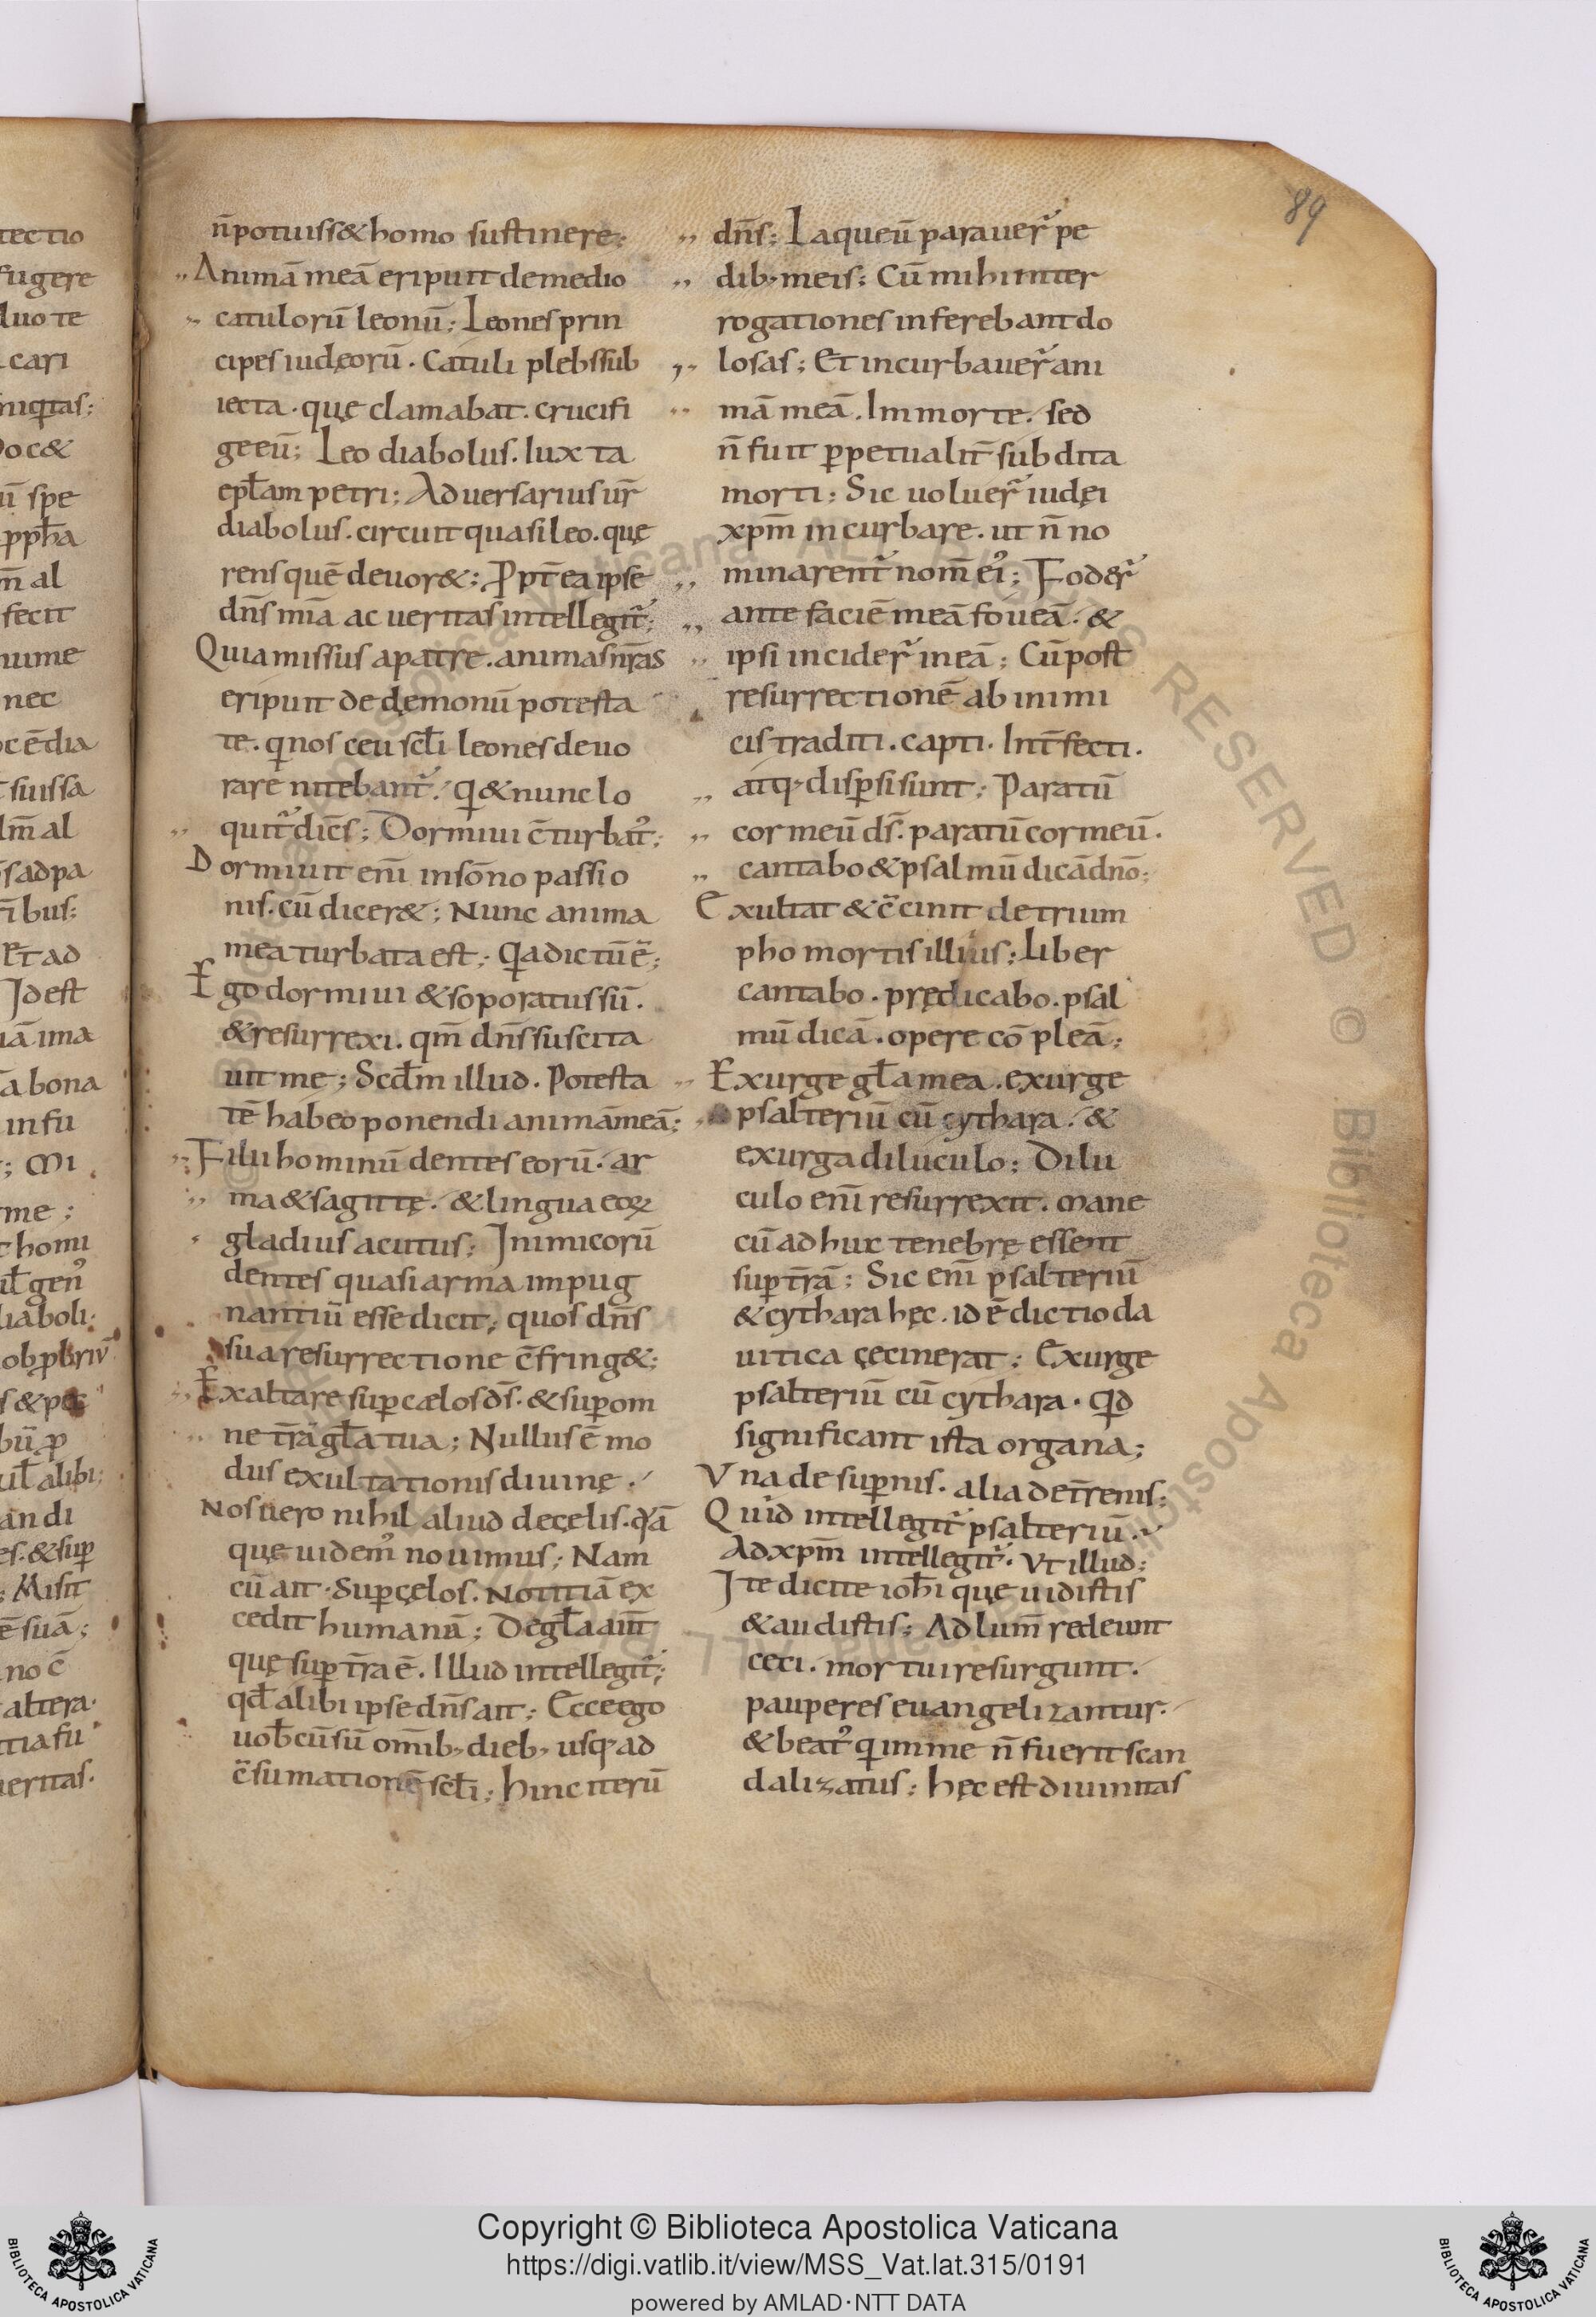 89
n̄ potuiss& homo sustinere;
Animā meā eripuit de medio
catulorū leonū; Leones prin
cipes iudęorū. Catuli plebs sub
iecta. quę clamabat. crucifi
ge eū; Leo diabolus. Iuxta
epl̄am petri; Aduersarius ur̄
diabolus. circuit quasi leo. quę
rens quē deuor&; Ppt̄ea ipse
dn̄s mīa ac ueritas intellegit᷑;
Quia missus a patre. animas nr̄as
eripuit de dęmonū potesta
te. q nos ceu scl̄i leones deuo
rare nitebant᷑. Q & nunc lo
quit᷑ dicēs; Dormiui c̄turbat᷒;
Dormiuit enī in sōno passio
nis. cū dicer&; Nunc anima
mea turbata est; Qa dictū ē;
Ego dormiui & soporatus sū.
& resurrexi. qm̄ dn̄s suscita
uit me; Scdm̄ illud. Potesta
tē habeo ponendi animā meā;
Filii hominū dentes eorū. ar
ma & sagittę. & lingua eoꝝ
gladius acutus; Inimicorū
dentes quasi arma impug
nantiū esse dicit; quos dn̄s
sua resurrectione c̄fring&;
Exaltare sup cælos ds̄. & sup om
ne tr̄ā gl̄a tua; Nullus ē mo
dus exultationis diuinę.
Nos uero nihil aliud de cęlis. qā
quę uidem᷒ nouimus; Nam
cū ait. Sup cęlos. Notitiā ex
cedit humanā; De gl̄a aut̄
quę sup tr̄a ē. Illud intellegit᷑;
qd̄ alibi ipse dn̄s ait; Ecce ego
uob̄cū sū omīb; dieb; usq; ad
c̄sumationē scl̄i; Hinc iterū
dn̄s; Laqueū parauer᷑ pe
dib; meis; Cū mihi inter
rogationes inferebant do
losas; Et incurbauer᷑ ani
mā meā. In morte. sed
n̄ fuit ppetualit̄ subdita
morti; Sic uoluer᷑ iudęi
xpm̄ incurbare. ut n̄ no
minarent᷑ nom̄ ei᷒; Foder᷑
ante faciē meā foueā. &
ipsi incider᷑ in eā; Cū post
resurrectionē ab inimi
cis traditi. capti. Int̄fecti.
atq; dispsi sunt; Paratū
cor meū ds̄. paratū cor meū.
cantabo & psalmū dicā dn̄o;
Exultat & c̄cinit de trium
pho mortis illius; Liber
cantabo. prędicabo. psal
mū dicā. opere cōpleā;
Exurge gl̄a mea. exurge
psalteriū cū cythara. &
exurga diluculo; Dilu
culo enī resurrexit. mane
cū adhuc tenebrę essent
sup tr̄ā; Sic enī psalteriū
& cythara hęc. id ē dictio da
uitica cęcinerat; Exurge
psalteriū cū cythara. Qd
significant ista organa;
Vna de supnis. alia de tr̄enis;
Quid intellegit᷑ psalteriū.
Ad xpm̄ intellegit᷑. Vt illud;
Ite dicite ioh̄i quę uidistis
& audistis; Ad lum̄ redeunt
cęci. mortui resurgunt.
pauperes euangelizantur.
& beat᷒ q in me n̄ fuerit scan
dalizatus; Hęc est diuinitas
Copyright © Biblioteca Apostolica Vaticana
https://digi.vatlib.it/view/MSS_Vat.lat.315/0191
powered by AMLAD·NTT DATA